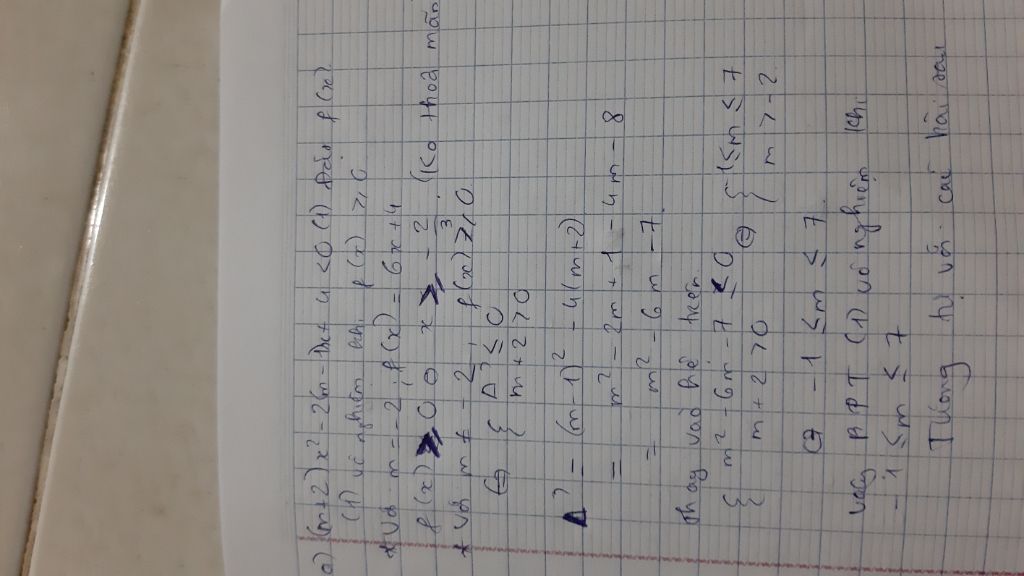 a) (m+2)x² - 2(m-1)x + 4 < 0 (1) Đặt f(x)
(1) vô nghiệm khi f(x) ≥ 0
* Với m = -2; f(x) = 6x+4
f(x) ≥ 0 ⇔ x ≥ -2/3 (Ko thoả mãn)
* Với m ≠ -2; f(x) ≥ 0
⇔ { Δ' ≤ 0
m+2 > 0
Δ' = (m-1)² - 4(m+2)
= m² - 2m + 1 - 4m - 8
= m² - 6m - 7
Thay vào hệ trên
{ m² - 6m - 7 ≤ 0 ⇔ { -1 ≤ m ≤ 7
m+2 > 0 m > -2
⇔ -1 ≤ m ≤ 7
Vậy BPT (1) vô nghiệm khi
-1 ≤ m ≤ 7
Tương tự với các bài sau